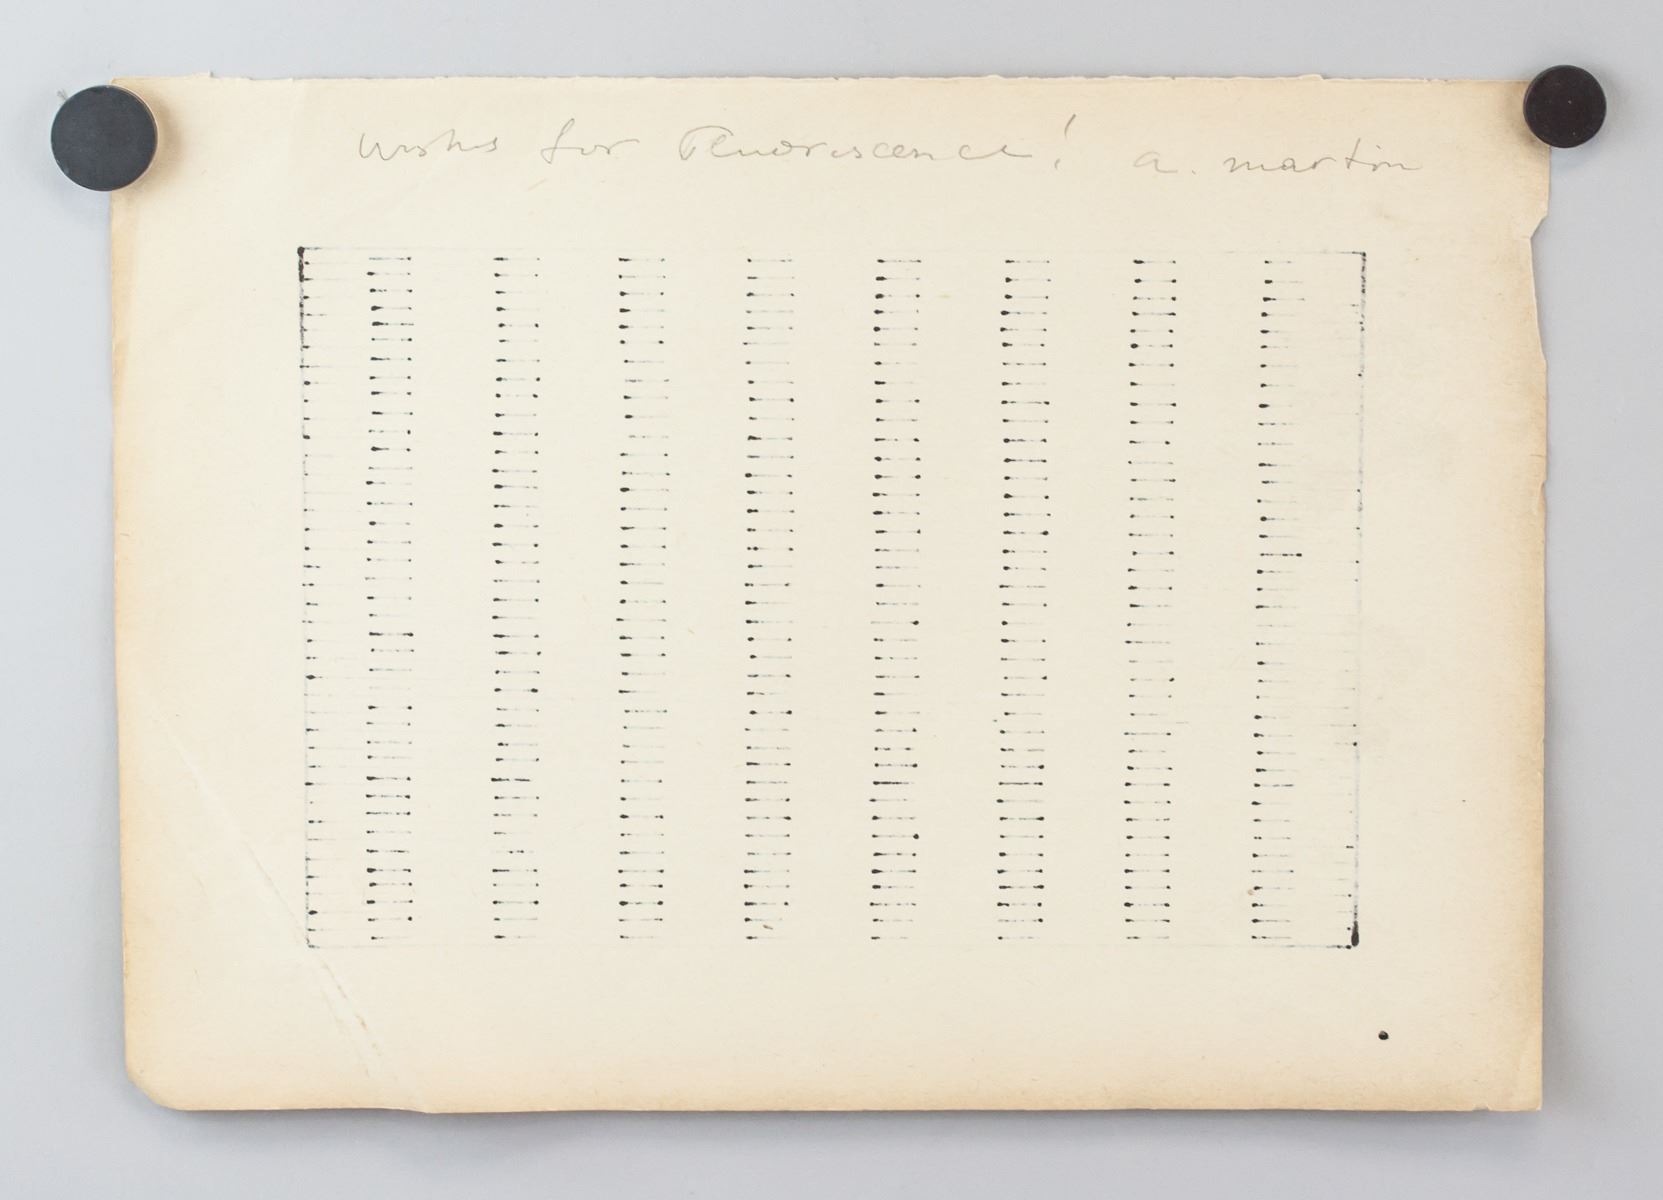 wishes for Fluorescence! a. martin